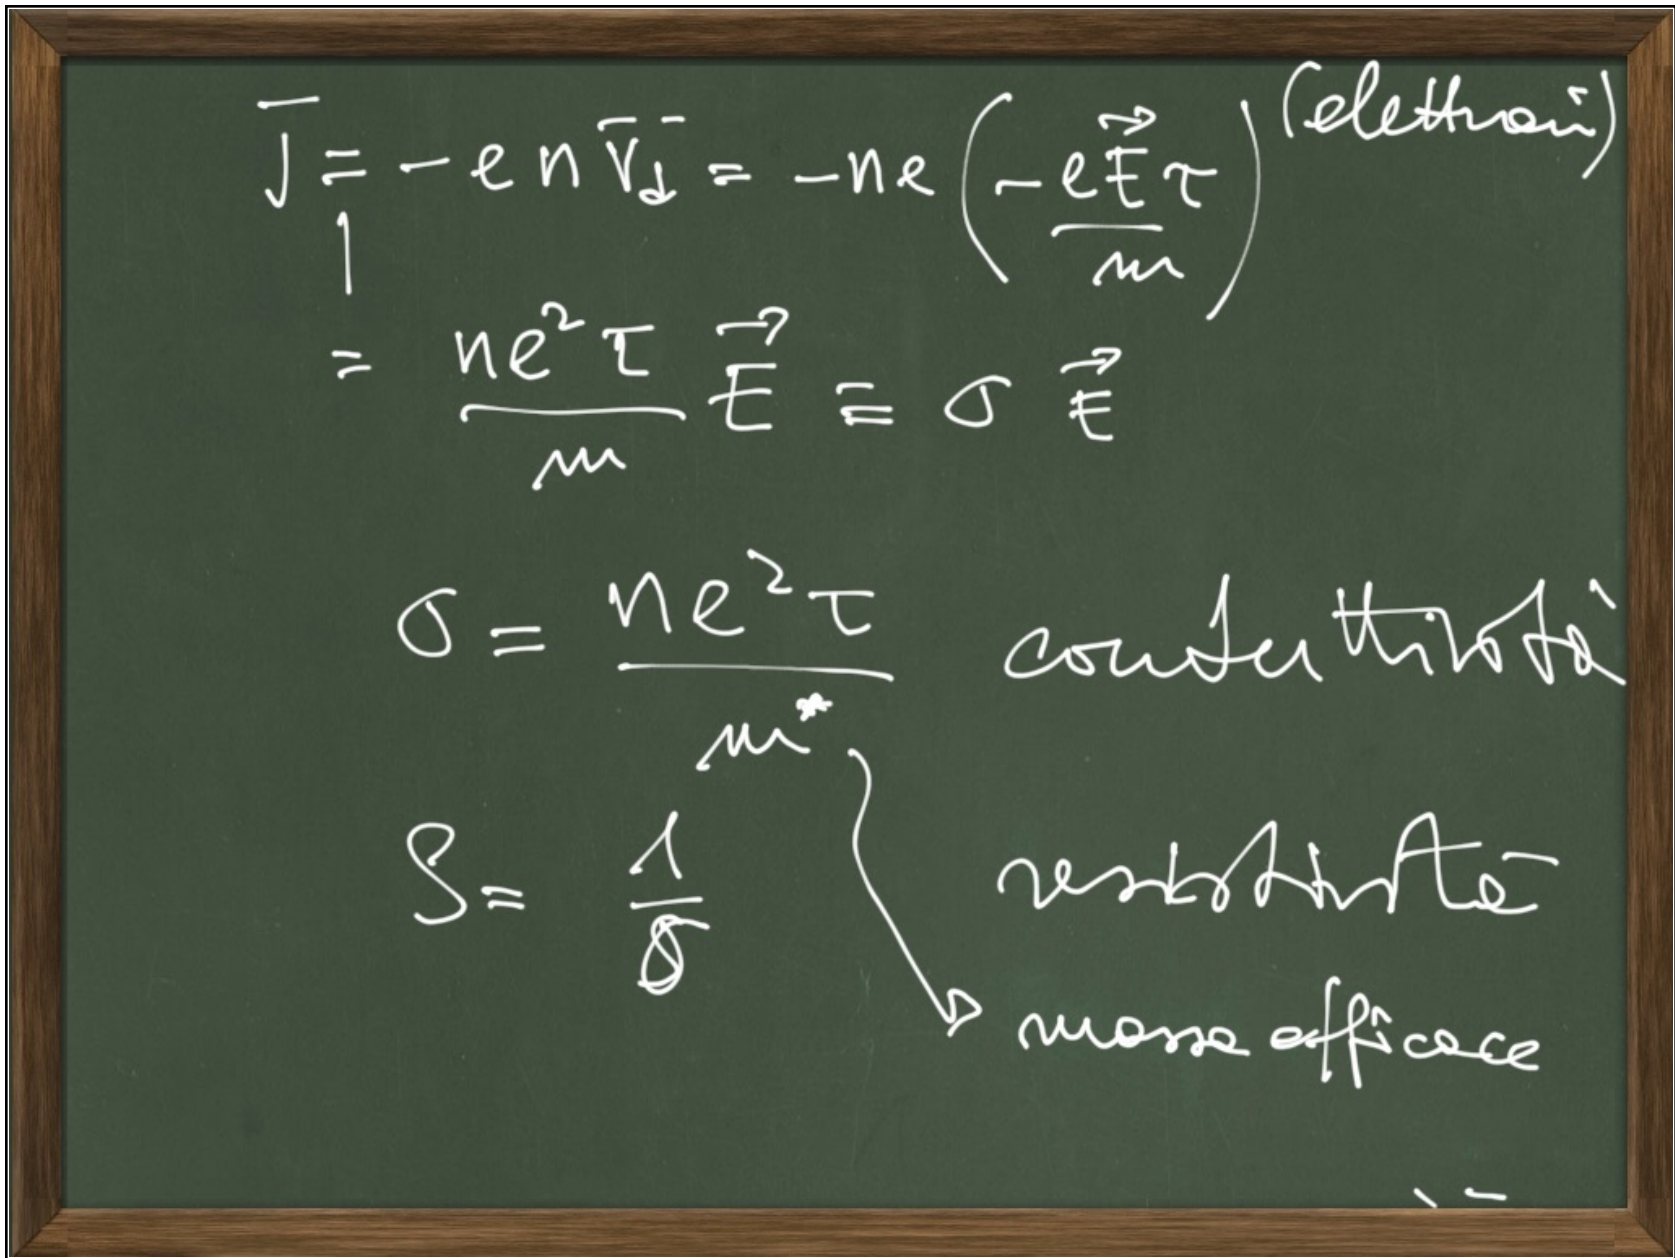 J̄ = - e n v̄_d = - n e ( - e E⃗ τ / m ) (elettroni)
= n e² τ / m E⃗ ≡ σ E⃗
σ = n e² τ / m* conduttività
ρ = 1 / σ resistività
massa efficace